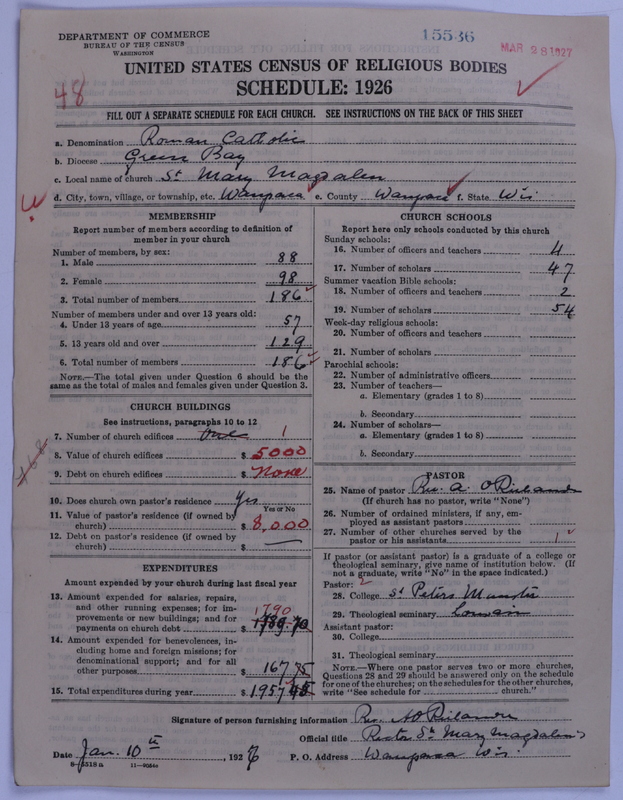 DEPARTMENT OF COMMERCE
BUREAU OF THE CENSUS
WASHINGTON
15536
MAR 28 1927
48
UNITED STATES CENSUS OF RELIGIOUS BODIES
SCHEDULE: 1926
FILL OUT A SEPARATE SCHEDULE FOR EACH CHURCH. SEE INSTRUCTIONS ON THE BACK OF THIS SHEET
a. Denomination Roman Catholic
b. Diocese Green Bay
c. Local name of church St Mary Magdalen
d. City, town, village, or township, etc. Waupaca e. County Waupaca f. State Wis
MEMBERSHIP
Report number of members according to definition of member in your church
Number of members, by sex:
1. Male 88
2. Female 98
3. Total number of members 186
Number of members under and over 13 years old:
4. Under 13 years of age 57
5. 13 years old and over 129
6. Total number of members 186
NOTE.—The total given under Question 6 should be the
same as the total of males and females given under Question 3.
CHURCH BUILDINGS
See instructions, paragraphs 10 to 12
7. Number of church edifices One 1
8. Value of church edifices $ 5000
9. Debt on church edifices $ None
10. Does church own pastor's residence Yes
Yes or No
11. Value of pastor's residence (if owned by
church) $ 8,000
12. Debt on pastor's residence (if owned by
church) $ —
EXPENDITURES
Amount expended by your church during last fiscal year
13. Amount expended for salaries, repairs,
and other running expenses; for im-
provements or new buildings; and for
payments on church debt $ 1789.70 1790
14. Amount expended for benevolences, in-
cluding home and foreign missions; for
denominational support; and for all
other purposes $ 167 75
15. Total expenditures during year $ 1957 45
CHURCH SCHOOLS
Report here only schools conducted by this church
Sunday schools:
16. Number of officers and teachers 4
17. Number of scholars 47
Summer vacation Bible schools:
18. Number of officers and teachers 2
19. Number of scholars 54
Week-day religious schools:
20. Number of officers and teachers
21. Number of scholars
Parochial schools:
22. Number of administrative officers
23. Number of teachers—
a. Elementary (grades 1 to 8)
b. Secondary
24. Number of scholars—
a. Elementary (grades 1 to 8)
b. Secondary
PASTOR
25. Name of pastor Rev. A.
(If church has no pastor, write "None")
26. Number of ordained ministers, if any, em-
ployed as assistant pastors
27. Number of other churches served by the
pastor or his assistants 1
If pastor (or assistant pastor) is a graduate of a college or
theological seminary, give name of institution below. (If
not a graduate, write "No" in the space indicated.)
Pastor: 2
28. College St Peters
29. Theological seminary Louvain
Assistant pastor:
30. College
31. Theological seminary
NOTE.—Where one pastor serves two or more churches,
Questions 28 and 29 should be answered only on the schedule
for one of the churches; on the schedules for the other churches,
write "See schedule for church."
Signature of person furnishing information Rev.
Official title Rector St Mary Magdalen's
Date Jan. 10th, 1926 P. O. Address Waupaca Wis.
8—5518a 11—9054a